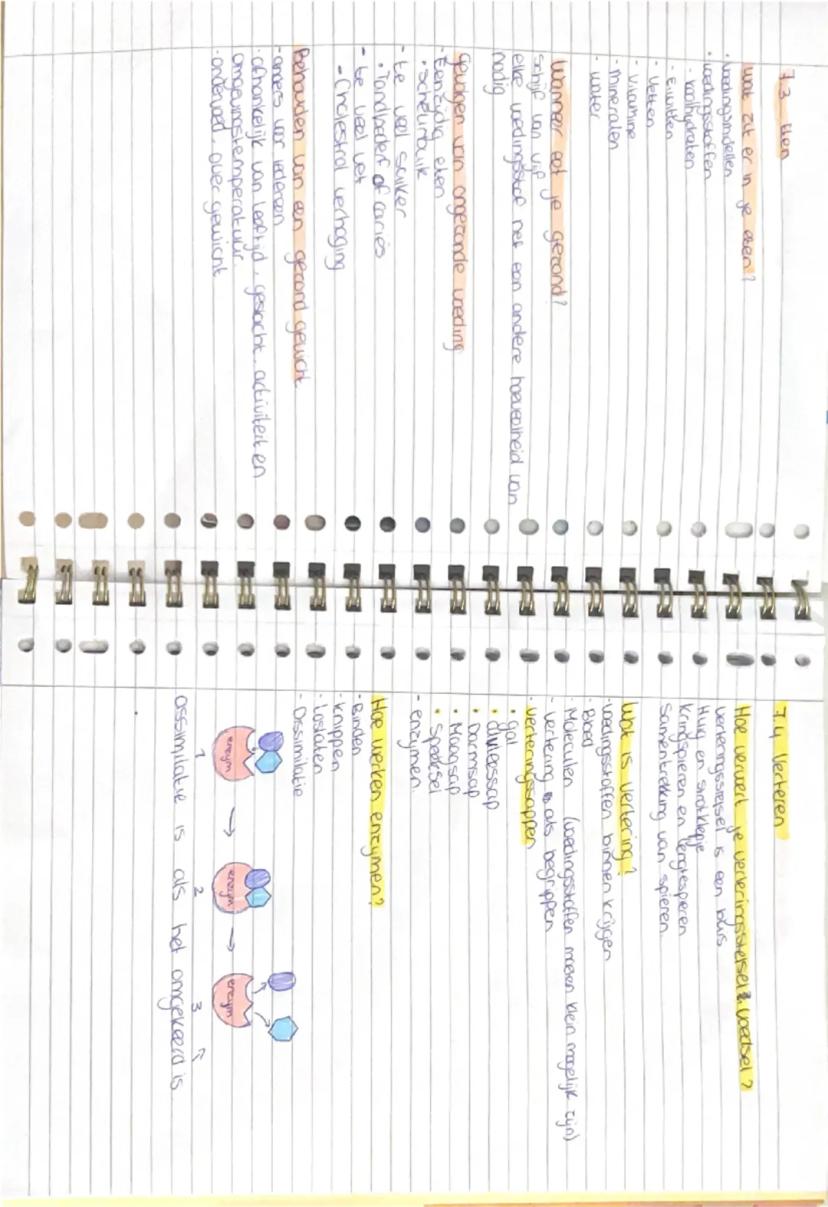 7.3 Eten
Wat zit er in je eten?
· Voedingsmiddelen
· voedingsstoffen
- Koolhydraten
- Eiwitten
- Vetten
- Vitamine
- Mineralen
- water
Wanneer eet je gezond?
Schijf van vijf
elke voedingsstof net een andere hoeveelheid van
nodig
gevolgen van ongezonde voeding
- Eenzijdig eten
• Scheurbuik
- te veel suiker
• Tandbederf of cariës
- te veel vet
- Cholestrol verhoging
Behouden van een gezond gewicht
- anders voor iedereen
· afhankelijk van leeftijd, geslacht, activiteit en
omgevingstemperatuur
· ondervoed, over gewicht
7.4 Verteren
Hoe verwert je verteringsstelsel voedsel?
verteringsstelsel is een buis
Huig en strotklepje
Kringspieren en lengtespieren
Samentrekking van spieren
Wat is vertering?
- voedingsstoffen binnen krijgen
- Bloed
- Molekulen (voedingsstoffen moeten klein mogelijk zijn)
- vertering als begrippen
- verteringssappen
• gal
• alvleessap
• Darmsap
• Maagsap
• Speeksel
- enzymen
Hoe werken enzymen?
- Binden
- Knippen
- Loslaten
- Dissimilatie
enzym
enzym
enzym
1 → 2 → 3
assimilatie is als het omgekeerd is